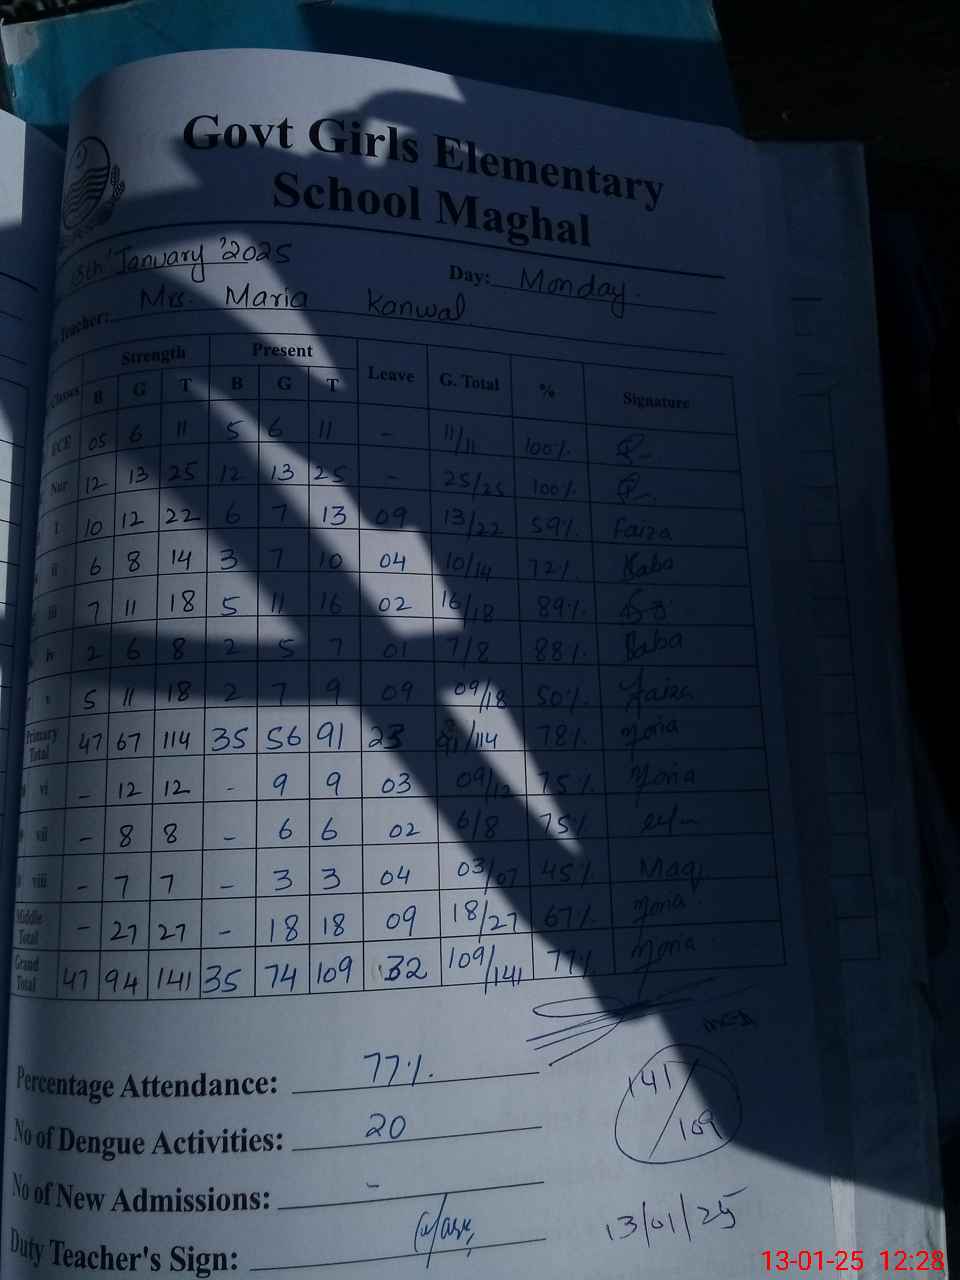 Govt Girls Elementary
School Maghal
January '2025 Day: Monday.
Teacher: Mrs. Maria Kanwal
Classes Strength Present Leave G. Total % Signature
B G T B G T
ECE 05 6 11 5 6 11 - 11/11 100%
Nur 12 13 25 12 13 25 - 25/25 100%
i 10 12 22 6 7 13 09 13/22 59% Faiza
ii 6 8 14 3 7 10 04 10/14 72% Raba
iii 7 11 18 5 11 16 02 16/18 89%
iv 2 6 8 2 5 7 01 7/8 88% Raba
v 5 11 18 2 7 9 09 09/18 50% Faiza
Primary Total 47 67 114 35 56 91 23 91/114 78% Moria
vi - 12 12 - 9 9 03 09/12 75% Moria
vii - 8 8 - 6 6 02 6/8 75%
viii - 7 7 - 3 3 04 03/07 45%
Middle Total - 27 27 - 18 18 09 18/27 67% Moria
Grand Total 47 94 141 35 74 109 32 109/141 77% Moria
Percentage Attendance: 77%.
141/109
No of Dengue Activities: 20
No of New Admissions: -
Duty Teacher's Sign:
13/01/25
13-01-25 12:28